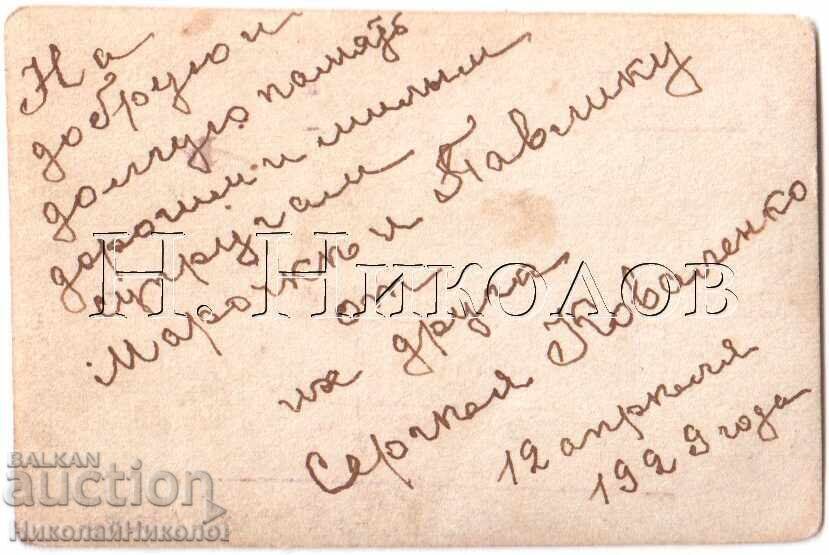 На
добрую и
долгую память
дорогим и милым
супругам
Марочке и Павлику
от
их друга
Сергея Коваленко
12 апреля
1929 года
Н. Николов
BALKAN
auction
НиколайНиколов